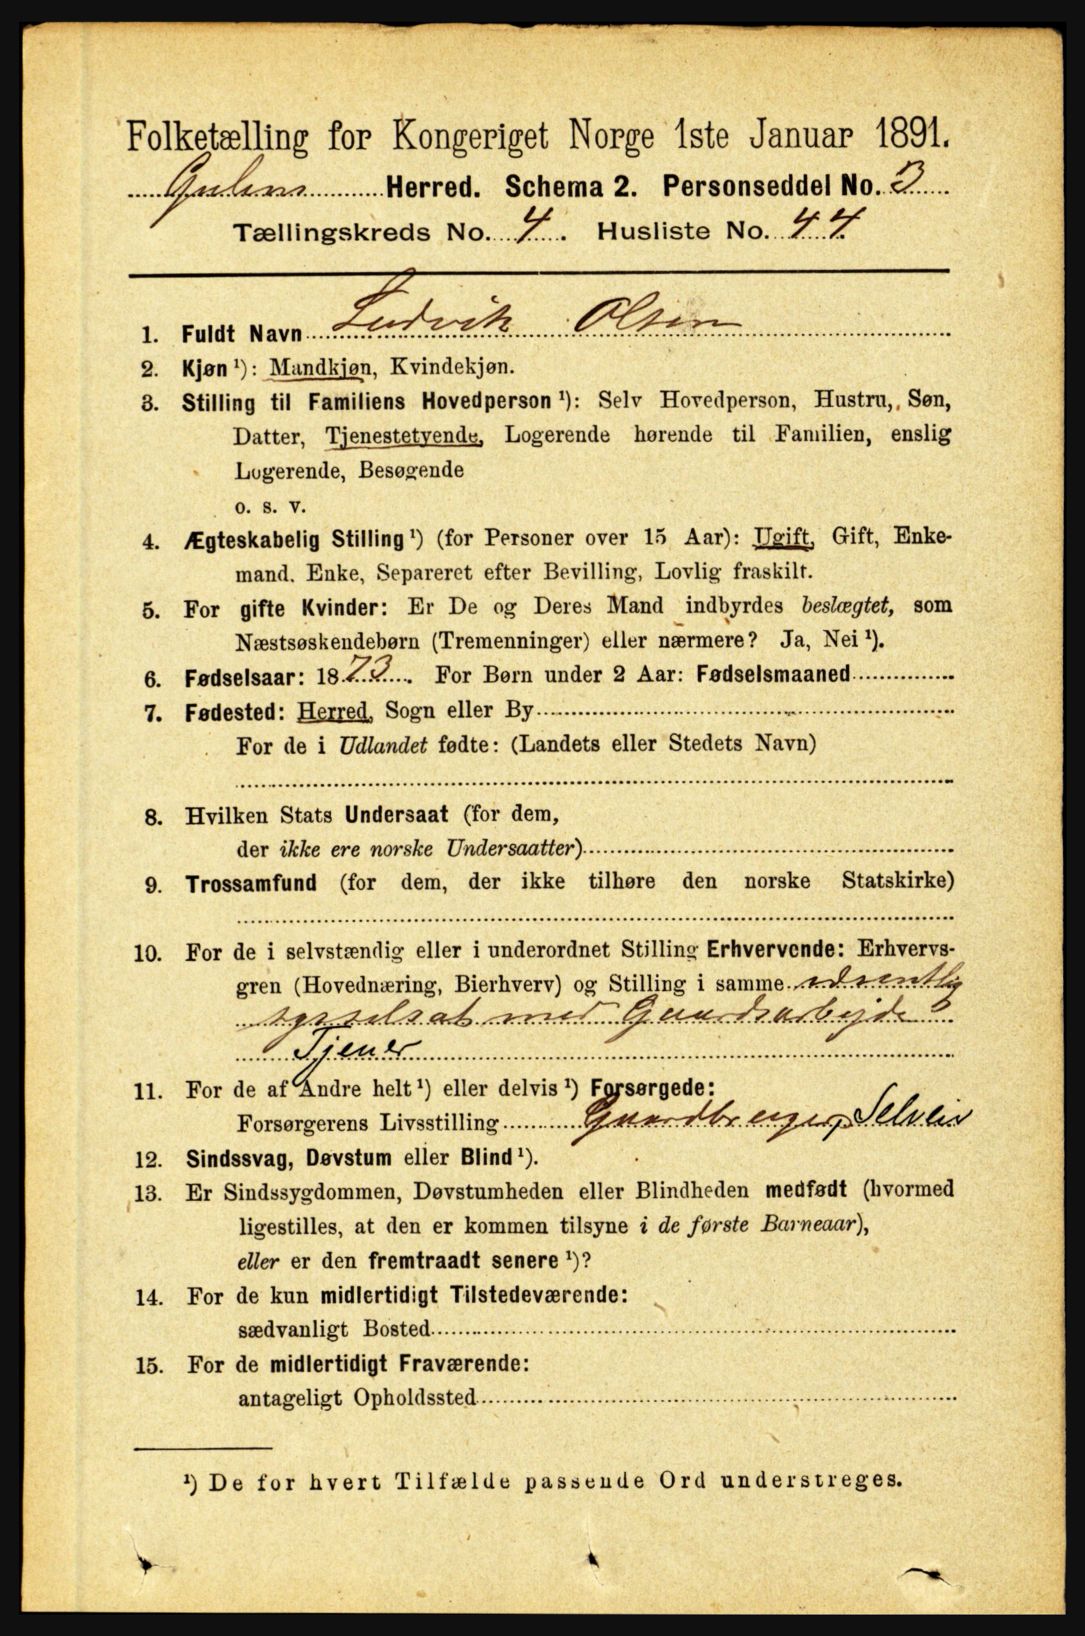 Folketælling for Kongeriget Norge 1ste Januar 1891.
Gulens Herred. Schema 2. Personseddel No. 3
Tællingskreds No. 4. Husliste No. 44.
1. Fuldt Navn Ludvik Olsen
2. Kjøn ¹): Mandkjøn, Kvindekjøn.
3. Stilling til Familiens Hovedperson ¹): Selv Hovedperson, Hustru, Søn,
Datter, Tjenestetyende, Logerende hørende til Familien, enslig
Logerende, Besøgende
o. s. v.
4. Ægteskabelig Stilling ¹) (for Personer over 15 Aar): Ugift, Gift, Enke-
mand, Enke, Separeret efter Bevilling, Lovlig fraskilt.
5. For gifte Kvinder: Er De og Deres Mand indbyrdes beslægtet, som
Næstsøskendebørn (Tremenninger) eller nærmere? Ja, Nei ¹).
6. Fødselsaar: 1873. For Børn under 2 Aar: Fødselsmaaned
7. Fødested: Herred, Sogn eller By
For de i Udlandet fødte: (Landets eller Stedets Navn)
8. Hvilken Stats Undersaat (for dem,
der ikke ere norske Undersaatter)
9. Trossamfund (for dem, der ikke tilhøre den norske Statskirke)
10. For de i selvstændig eller i underordnet Stilling Erhvervende: Erhvervs-
gren (Hovednæring, Bierhverv) og Stilling i samme væsentlig
sysselsat med Gaardsarbejde
Tjener
11. For de af Andre helt ¹) eller delvis ¹) Forsørgede:
Forsørgerens Livsstilling Gaardbruger, Selveier
12. Sindssvag, Døvstum eller Blind ¹).
13. Er Sindssygdommen, Døvstumheden eller Blindheden medfødt (hvormed
ligestilles, at den er kommen tilsyne i de første Barneaar),
eller er den fremtraadt senere ¹)?
14. For de kun midlertidigt Tilstedeværende:
sædvanligt Bosted
15. For de midlertidigt Fraværende:
antageligt Opholdssted
¹) De for hvert Tilfælde passende Ord understreges.